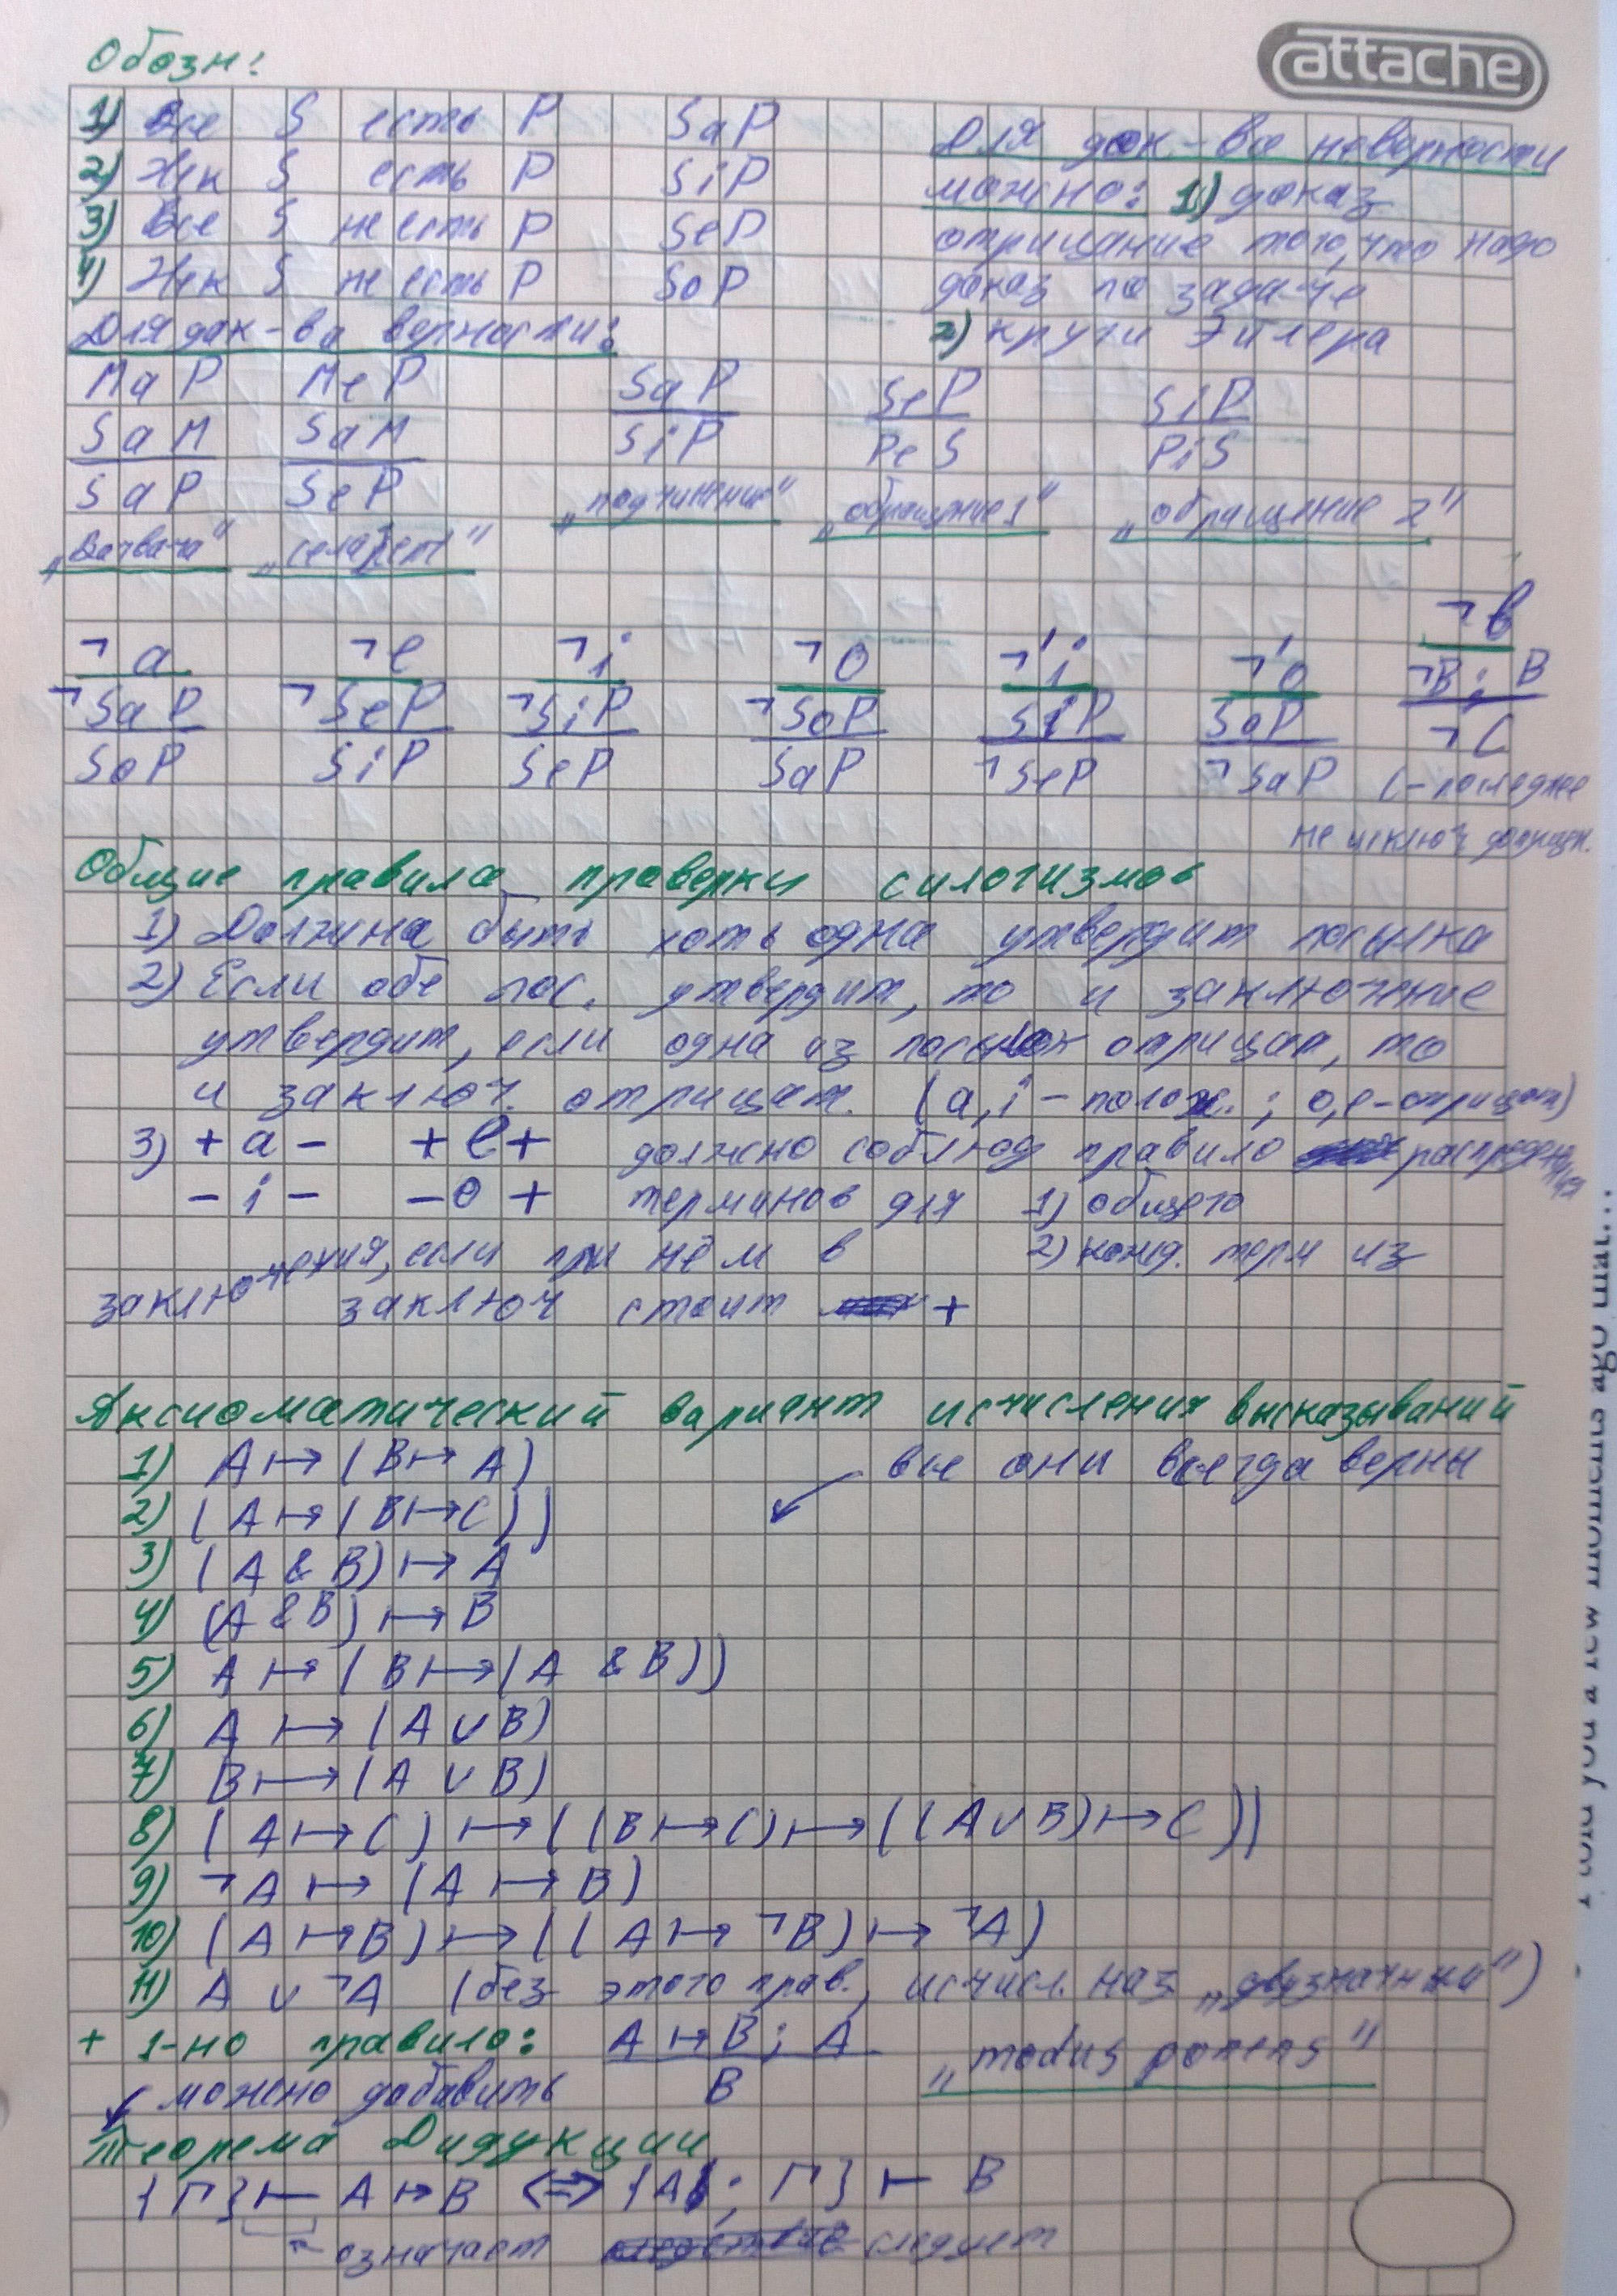 attache
Обозн:
1) Все S есть P SaP
2) Нек S есть P SiP
3) Все S не есть P SeP
4) Нек S не есть P SoP
Для док-ва неверности
можно: 1) доказ
отрицание того, что надо
доказ по задаче
2) круги Эйлера
Для док-ва верности:
MaP MeP SaP SeP SiP
SaM SaM SiP PeS PiS
SaP SeP
„подчинение" „обращение 1" „обращение 2"
„селарет"
¬a ¬e ¬i ¬o ¬'i ¬'o ¬в
¬SaP ¬SeP ¬SiP ¬SoP SiP SoP ¬B; B
SoP SiP SeP SaP ¬SeP ¬SaP ¬C
C – последнее
не исключ допущ.
Общие правила проверки силогизмов
1) Должна быть хоть одна утвердит посылка
2) Если обе пос. утвердит, то и заключение
утвердит, если одна из посылок отрицат, то
и заключ. отрицат. (a, i – полож.; o, e – отрицат)
3) + a – + e + должно соблюд правило распределения
– i – – o + терминов для 1) общего
2) кажд. терм из
заключения, если при нём в
заключ стоит +
Аксиоматический вариант исчисления высказываний
1) A ↦ (B ↦ A) все они всегда верны
2) (A ↦ (B ↦ C))
3) (A & B) ↦ A
4) (A & B) ↦ B
5) A ↦ (B ↦ (A & B))
6) A ↦ (A ∪ B)
7) B ↦ (A ∪ B)
8) (A ↦ C) ↦ ((B ↦ C) ↦ ((A ∪ B) ↦ C))
9) ¬A ↦ (A ↦ B)
10) (A ↦ B) ↦ ((A ↦ ¬B) ↦ ¬A)
11) A ∪ ¬A (без этого прав., исчисл. наз „двузначным")
+ 1-но правило: A ↦ B; A „modus ponens"
B
можно добавить
Теорема Дидукции
{Г} ⊢ A ↦ B <=> {A; Г} ⊢ B
означает следует
I told you a few moments ago that...